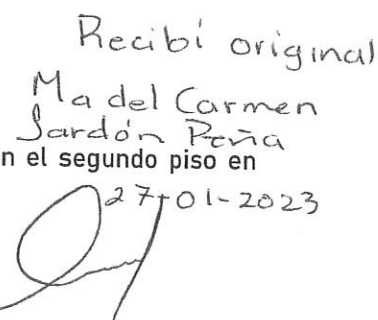 Recibí original
Ma del Carmen
Jardón Peña
n el segundo piso en
27-01-2023